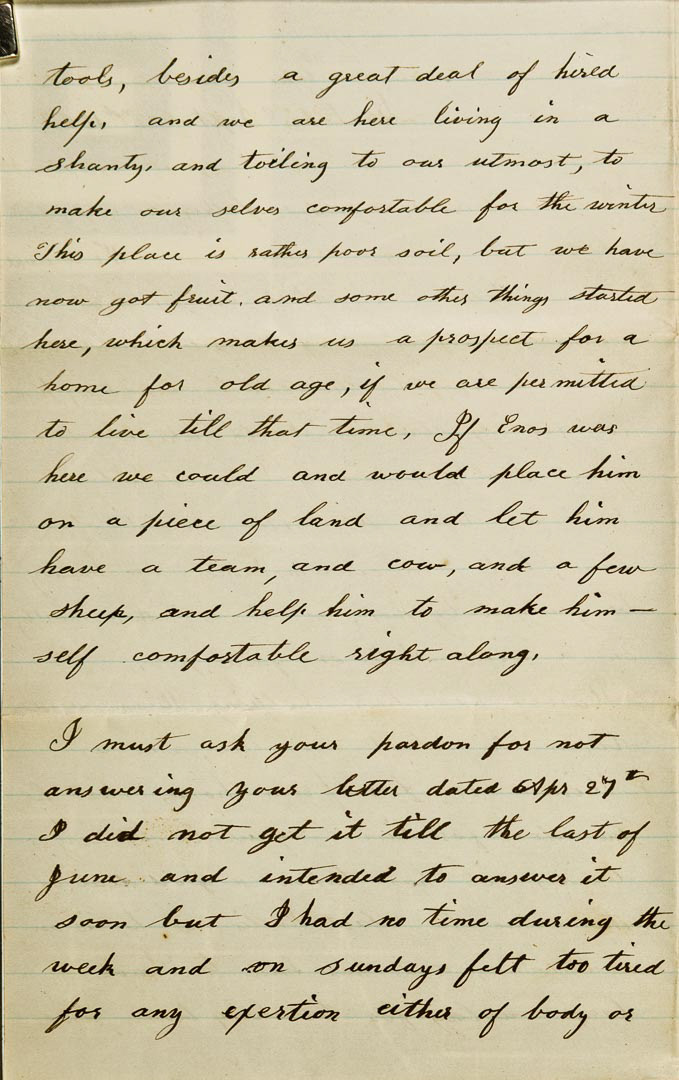 tools, besides a great deal of hired
help, and we are here living in a
shanty, and toiling to our utmost, to
make our selves comfortable for the winter
This place is rather poor soil, but we have
now got fruit, and some other things started
here, which makes us a prospect for a
home for old age, if we are permitted
to live till that time. If Enos was
here we could and would place him
on a piece of land and let him
have a team, and cow, and a few
sheep, and help him to make him—
self comfortable right along.
I must ask your pardon for not
answering your letter dated Apr 27th
I did not get it till the last of
June and intended to answer it
soon but I had no time during the
week and on sundays felt too tired
for any exertion either of body or